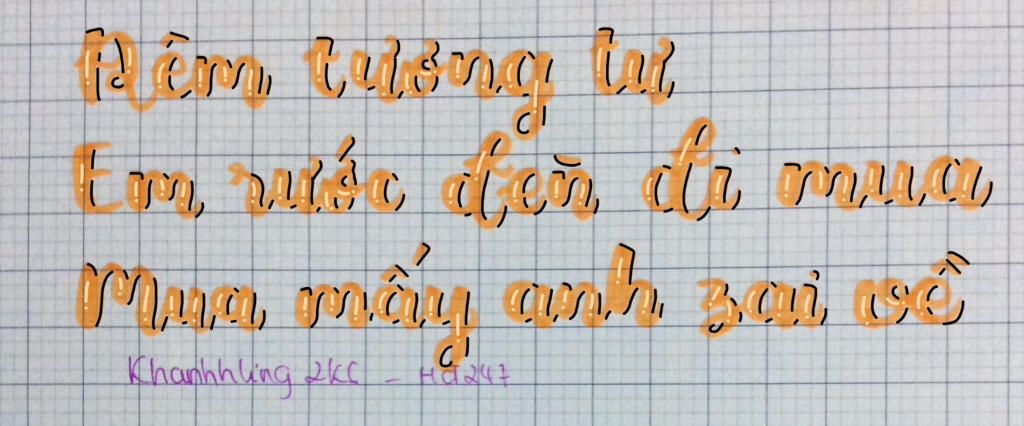 Đêm tương tư
Em rước đèn đi mua
Mua mấy anh zai về
Khanhhling 2k6 - Hd247